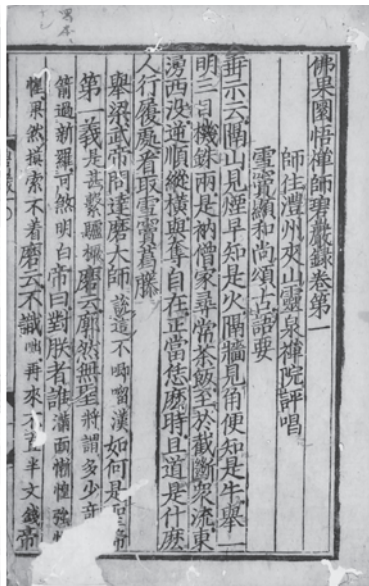 佛果圜悟禪師碧巖錄卷第一
師住澧州夾山靈泉禪院評唱
雪竇顯和尚頌古語要
垂示云隔山見煙早知是火隔牆見角便知是牛舉一
明三目機銖兩是衲僧家尋常茶飯至於截斷眾流東
湧西沒逆順縱橫與奪自在正當恁麼時且道是什麼
人行履處看取雪竇葛藤
舉梁武帝問達磨大師說這不唧𠺕漢如何是聖諦
第一義是甚繫驢橛磨云廓然無聖將謂多少奇
箭過新羅可煞明白帝曰對朕者誰滿面慚惶強惺
惺果然摸索不着磨云不識咄再來不直半文錢帝